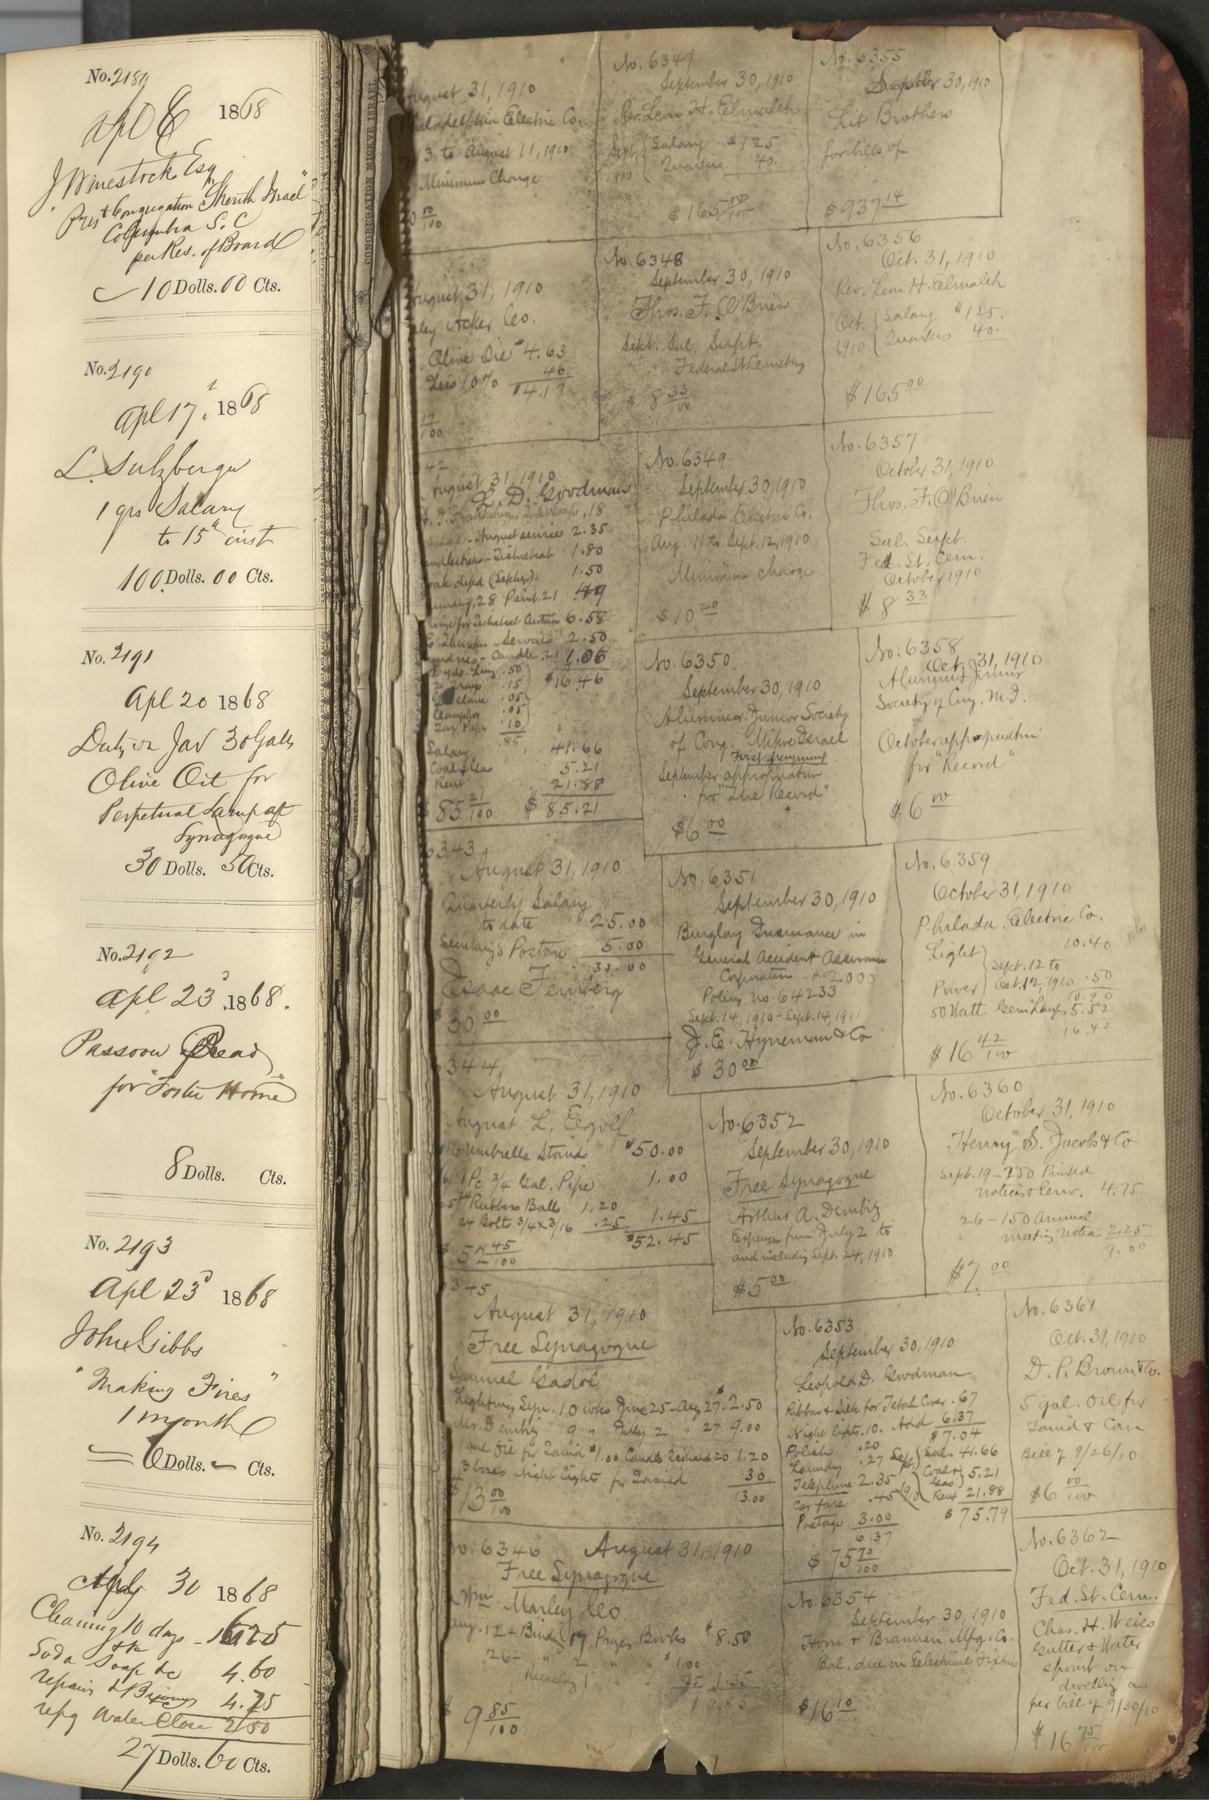 No. 2189
Apl 6 1868
J Winestock Esq
Prest Congregation "Sherith Israel"
Columbia S. C
per Res. of Board
10 Dolls. 00 Cts.
No. 2190
Apl 17, 1868
L. Sulzberger
1 qrs Salary
to 15th inst
100 Dolls. 00 Cts.
No. 2191
Apl 20 1868
Duty on Jar 30 Galls
Olive Oil for
Perpetual Lamp of
Synagogue
30 Dolls. 50 Cts.
No. 2192
Apl 23d 1868.
Passover Bread
for "Foster Home"
8 Dolls. Cts.
No. 2193
Apl 23d 1868
John Gibbs
"Making Fires"
1 month
6 Dolls. Cts.
No. 2194
30 1868
Cleaning 10 days
Soda Soap &c 4.60
repairs 4.75
repg Water Close 2/50
27 Dolls. 60 Cts.
CONGREGATION MICKVE ISRAEL
August 31, 1910
Philadelphia Electric Co.
13 to August 11, 1910
Minimum Charge
10/100
August 31, 1910
ley Acker Co.
Olive Oil $4.63
Less 10% 46
$4.17
17/100
42
August 31, 1910
L. D. Goodman
.18
August service 2.35
1.80
1.50
laundry .28 Paint .21 49
6.58
Services 2.50
Candle .21 1.06
.50 $16.46
.15
.05
.05
.10
.85
Salary 41.66
Coal & Gas 5.21
Rent 21.88
$85 21/100 $85.21
6343
August 31, 1910
Quarterly Salary
to date 25.00
Secretary's Postage 5.00
30.00
Isaac Feinberg
$30 00
6344
August 31, 1910
August L.
Umbrella Stand $50.00
1 Pc 3/4 Gal. Pipe 1.00
Rubbers Balls 1.20
24 Bolt 3/4 x 3/16 .25 1.45
$52.45
$52 45/100
6345
August 31, 1910
Free Synagogue
Samuel Gadol
Lighting Syn. 10 weeks June 25-Aug 27 $2.50
Mr. Dembitz 9 " July 2 " 27 9.00
1 gal Oil for Tamid $1.00 Candle 20 1.20
3 boxes Night Lights for Tamid 30
13.00
$13 00/100
No. 6346 August 31, 1910
Free Synagogue
Wm Marley Co.
Aug. 12 - Bindg 17 Prayer Books $8.50
26 - " 2 " " $1.00
1 " 35 1.35
$9.85
$9 85/100
No. 6347
September 30, 1910
Rev. Leon H. Elmaleh
Sept. Salary $125
1910 Quarters 40.
$165 00/100
No. 6348
September 30, 1910
Thos. F. O'Brien
Sept. Sal. Supt.
Federal St. Cemetery
$8 33/100
No. 6349
September 30, 1910
Philada. Electric Co.
Aug. 11 to Sept. 12, 1910
Minimum Charge
$10 20
No. 6350
September 30, 1910
Alumni Junior Society
of Cong. Mikve Israel
First payment
September appropriation
for "The Record"
$6 00
No. 6351
September 30, 1910
Burglary Insurance in
General Accident Assurance
Corporation - $2000
Policy no. 64233
Sept. 14, 1910 - Sept. 14, 1911
J. E. Hyneman & Co
$30 00
No. 6352
September 30, 1910
Free Synagogue
Arthur A. Dembitz
Expenses from July 2 to
and including Sept. 24, 1910
$5 00
No. 6353
September 30, 1910
Leopold D. Goodman
Ribbon & Silk for Tebah Cover .67
Night Lights .10. Add 6.37
$7.04
Polish .20
Laundry .27 Sept. Sal. 41.66
Telephone 2.35 Coal & Gas 5.21
Car fare .45 1910 Rent 21.88
Postage 3.00 $75.79
6.37
$75 79/100
No. 6354
September 30, 1910
Horn & Brannen Mfg. Co.
Bal. due on Electrical Fixtures
$16 10
No. 6355
September 30, 1910
Lit Brothers
for bills of
$937 14
No. 6356
Oct. 31, 1910
Rev. Leon H. Elmaleh
Oct. Salary $125.
1910 Quarters 40.
$165 00
No. 6357
October 31, 1910
Thos. F. O'Brien
Sal. Supt.
Fed. St. Cem.
October 1910
$8 33
No. 6358
Oct. 31, 1910
Alumni Junior
Society of Cong. M. I.
October appropriation
for "Record"
$6 00
No. 6359
October 31, 1910
Philada. Electric Co.
Light 10.40
Sept. 12 to
Power Oct. 12, 1910 .50
10.90
50 Watt Gem Lamps 5.52
16.42
$16 42/100
No. 6360
October 31, 1910
Henry S. Jacobs & Co
Sept. 19 - 250 Printed
notices & Env. 4.75
26 - 150 Annual
meeting notice 2.25
7.00
$7. 00
No. 6361
Oct. 31, 1910
D. P. Brown & Co.
5 gal. Oil for
Tamid & Can
Bill of 9/26/10
$6 00/100
No. 6362
Oct. 31, 1910
Fed. St. Cem.
Chas. H. Weiss
Gutter & Water
spout on
dwelling as
per bill of 9/30/10
$16 75/100